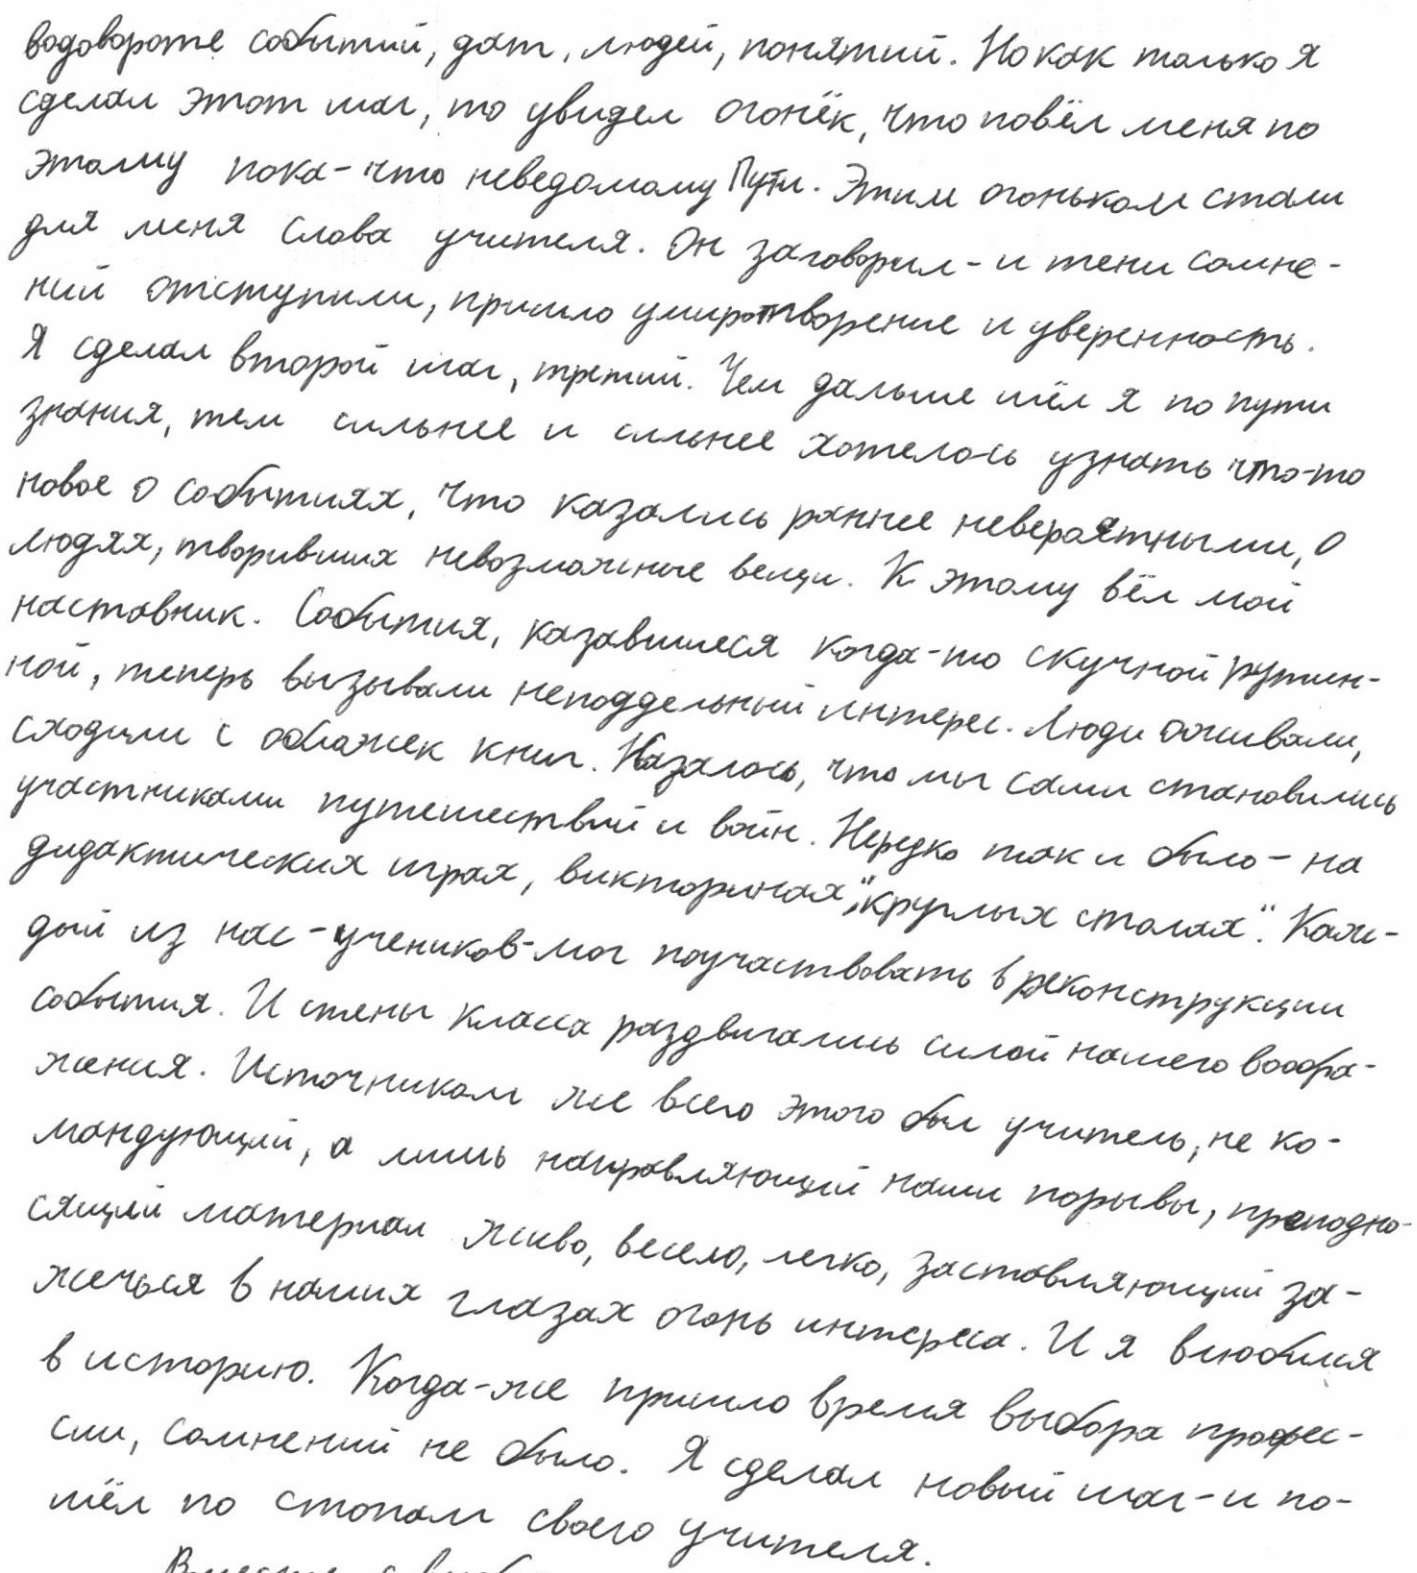 водовороте событий, дат, людей, понятий. Но как только я
сделал этот шаг, то увидел огонёк, что повёл меня по
этому пока-что неведомому Пути. Этим огоньком стали
для меня слова учителя. Он заговорил - и тени сомне-
ний отступили, пришло умиротворение и уверенность.
Я сделал второй шаг, третий. Чем дальше шёл я по пути
знания, тем сильнее и сильнее хотелось узнать что-то
новое о событиях, что казались раннее невероятными, о
людях, творивших невозможные вещи. К этому вёл мой
наставник. События, казавшиеся когда-то скучной рутин-
ной, теперь вызывали неподдельный интерес. Люди оживали,
сходили с обложек книг. Казалось, что мы сами становились
участниками путешествий и войн. Нередко так и было - на
дидактических играх, викторинах, "круглых столах". Каж-
дый из нас - учеников - мог поучаствовать в реконструкции
события. И стены класса раздвигались силой нашего вообра-
жения. Источником же всего этого был учитель, не ко-
мандующий, а лишь направляющий наши порывы, преподно-
сящий материал живо, весело, легко, заставляющий за-
жечься в наших глазах огонь интереса. И я влюбился
в историю. Когда-же пришло время выбора професс-
сии, сомнений не было. Я сделал новый шаг - и по-
шёл по стопам своего учителя.